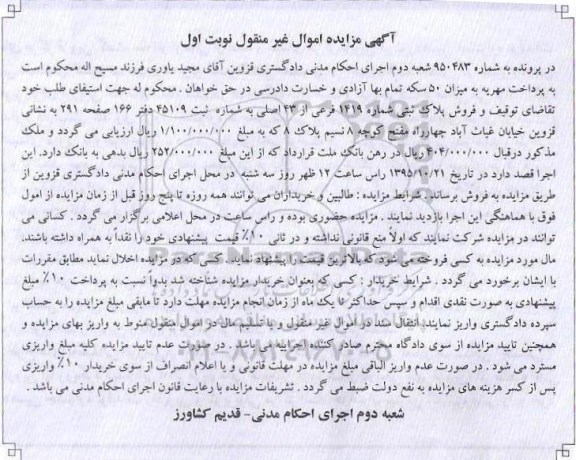 آگهی مزایده اموال غیر منقول نوبت اول
در پرونده به شماره ۹۵۰۴۸۳ شعبه دوم اجرای احکام مدنی دادگستری قزوین آقای مجید یاوری فرزند مسیح اله محکوم است
به پرداخت مهریه به میزان ۵۰ سکه تمام بها آزادی و خسارت دادرسی در حق خواهان . محکوم له جهت استیفای طلب خود
تقاضای توقیف و فروش پلاک ثبتی شماره ۱۴۱۹ فرعی از ۴۳ اصلی به شماره ثبت ۴۵۱۰۹ دفتر ۱۶۶ صفحه ۲۹۱ به نشانی
قزوین خیابان غیاث آباد چهارراه مفتح کوچه ۸ نسیم پلاک ۸ که به مبلغ ۱/۱۰۰/۰۰۰/۰۰۰ ریال ارزیابی می گردد و ملک
مذکور درقبال ۴۰۴/۰۰۰/۰۰۰ ریال در رهن بانک ملت قرارداد که از این مبلغ ۲۵۲/۰۰۰/۰۰۰ ریال بدهی به بانک دارد. این
اجرا قصد دارد در تاریخ ۱۳۹۵/۱۰/۲۱ راس ساعت ۱۲ ظهر روز سه شنبه در محل اجرای احکام مدنی دادگستری قزوین از
طریق مزایده به فروش برساند. شرایط مزایده : طالبین و خریداران می توانند همه روزه تا پنج روز قبل از زمان مزایده از امول
فوق با هماهنگی این اجرا بازدید نمایند . مزایده حضوری بوده و راس ساعت در محل اعلامی برگزار می گردد . کسانی می
توانند در مزایده شرکت نمایند که اولاً منع قانونی نداشته و در ثانی ۱۰٪ قیمت پیشنهادی خود را نقداً به همراه داشته باشند.
مال مورد مزایده به کسی فروخته می شود که بالاترین قیمت را پیشنهاد نماید. کسی که در مزایده اخلال نماید مطابق مقررات
با ایشان برخورد می گردد . شرایط خریدار : کسی که بعنوان خریدار مزایده شناخته شد بدواً نسبت به پرداخت ۱۰٪ مبلغ
پیشنهادی به صورت نقدی اقدام و سپس حداکثر تا یک ماه از زمان انجام مزایده مهلت دارد تا مابقی مبلغ مزایده را به حساب
سپرده دادگستری واریز نمایند. انتقال سند در اموال غیر منقول و یا تسلیم مال در اموال منقول منوط به واریز بهای مزایده و
همچنین تایید مزایده از سوی دادگاه محترم صادر کننده اجراییه می باشد . در صورت عدم تایید مزایده کلیه مبلغ واریزی
مسترد می شود . در صورت عدم واریز الباقی مبلغ مزایده در مهلت قانونی و یا اعلام انصراف از سوی خریدار ۱۰٪ واریزی
پس از کسر هزینه های مزایده به نفع دولت ضبط می گردد . تشریفات مزایده با رعایت قانون اجرای احکام مدنی می باشد .
شعبه دوم اجرای احکام مدنی- قدیم کشاورز